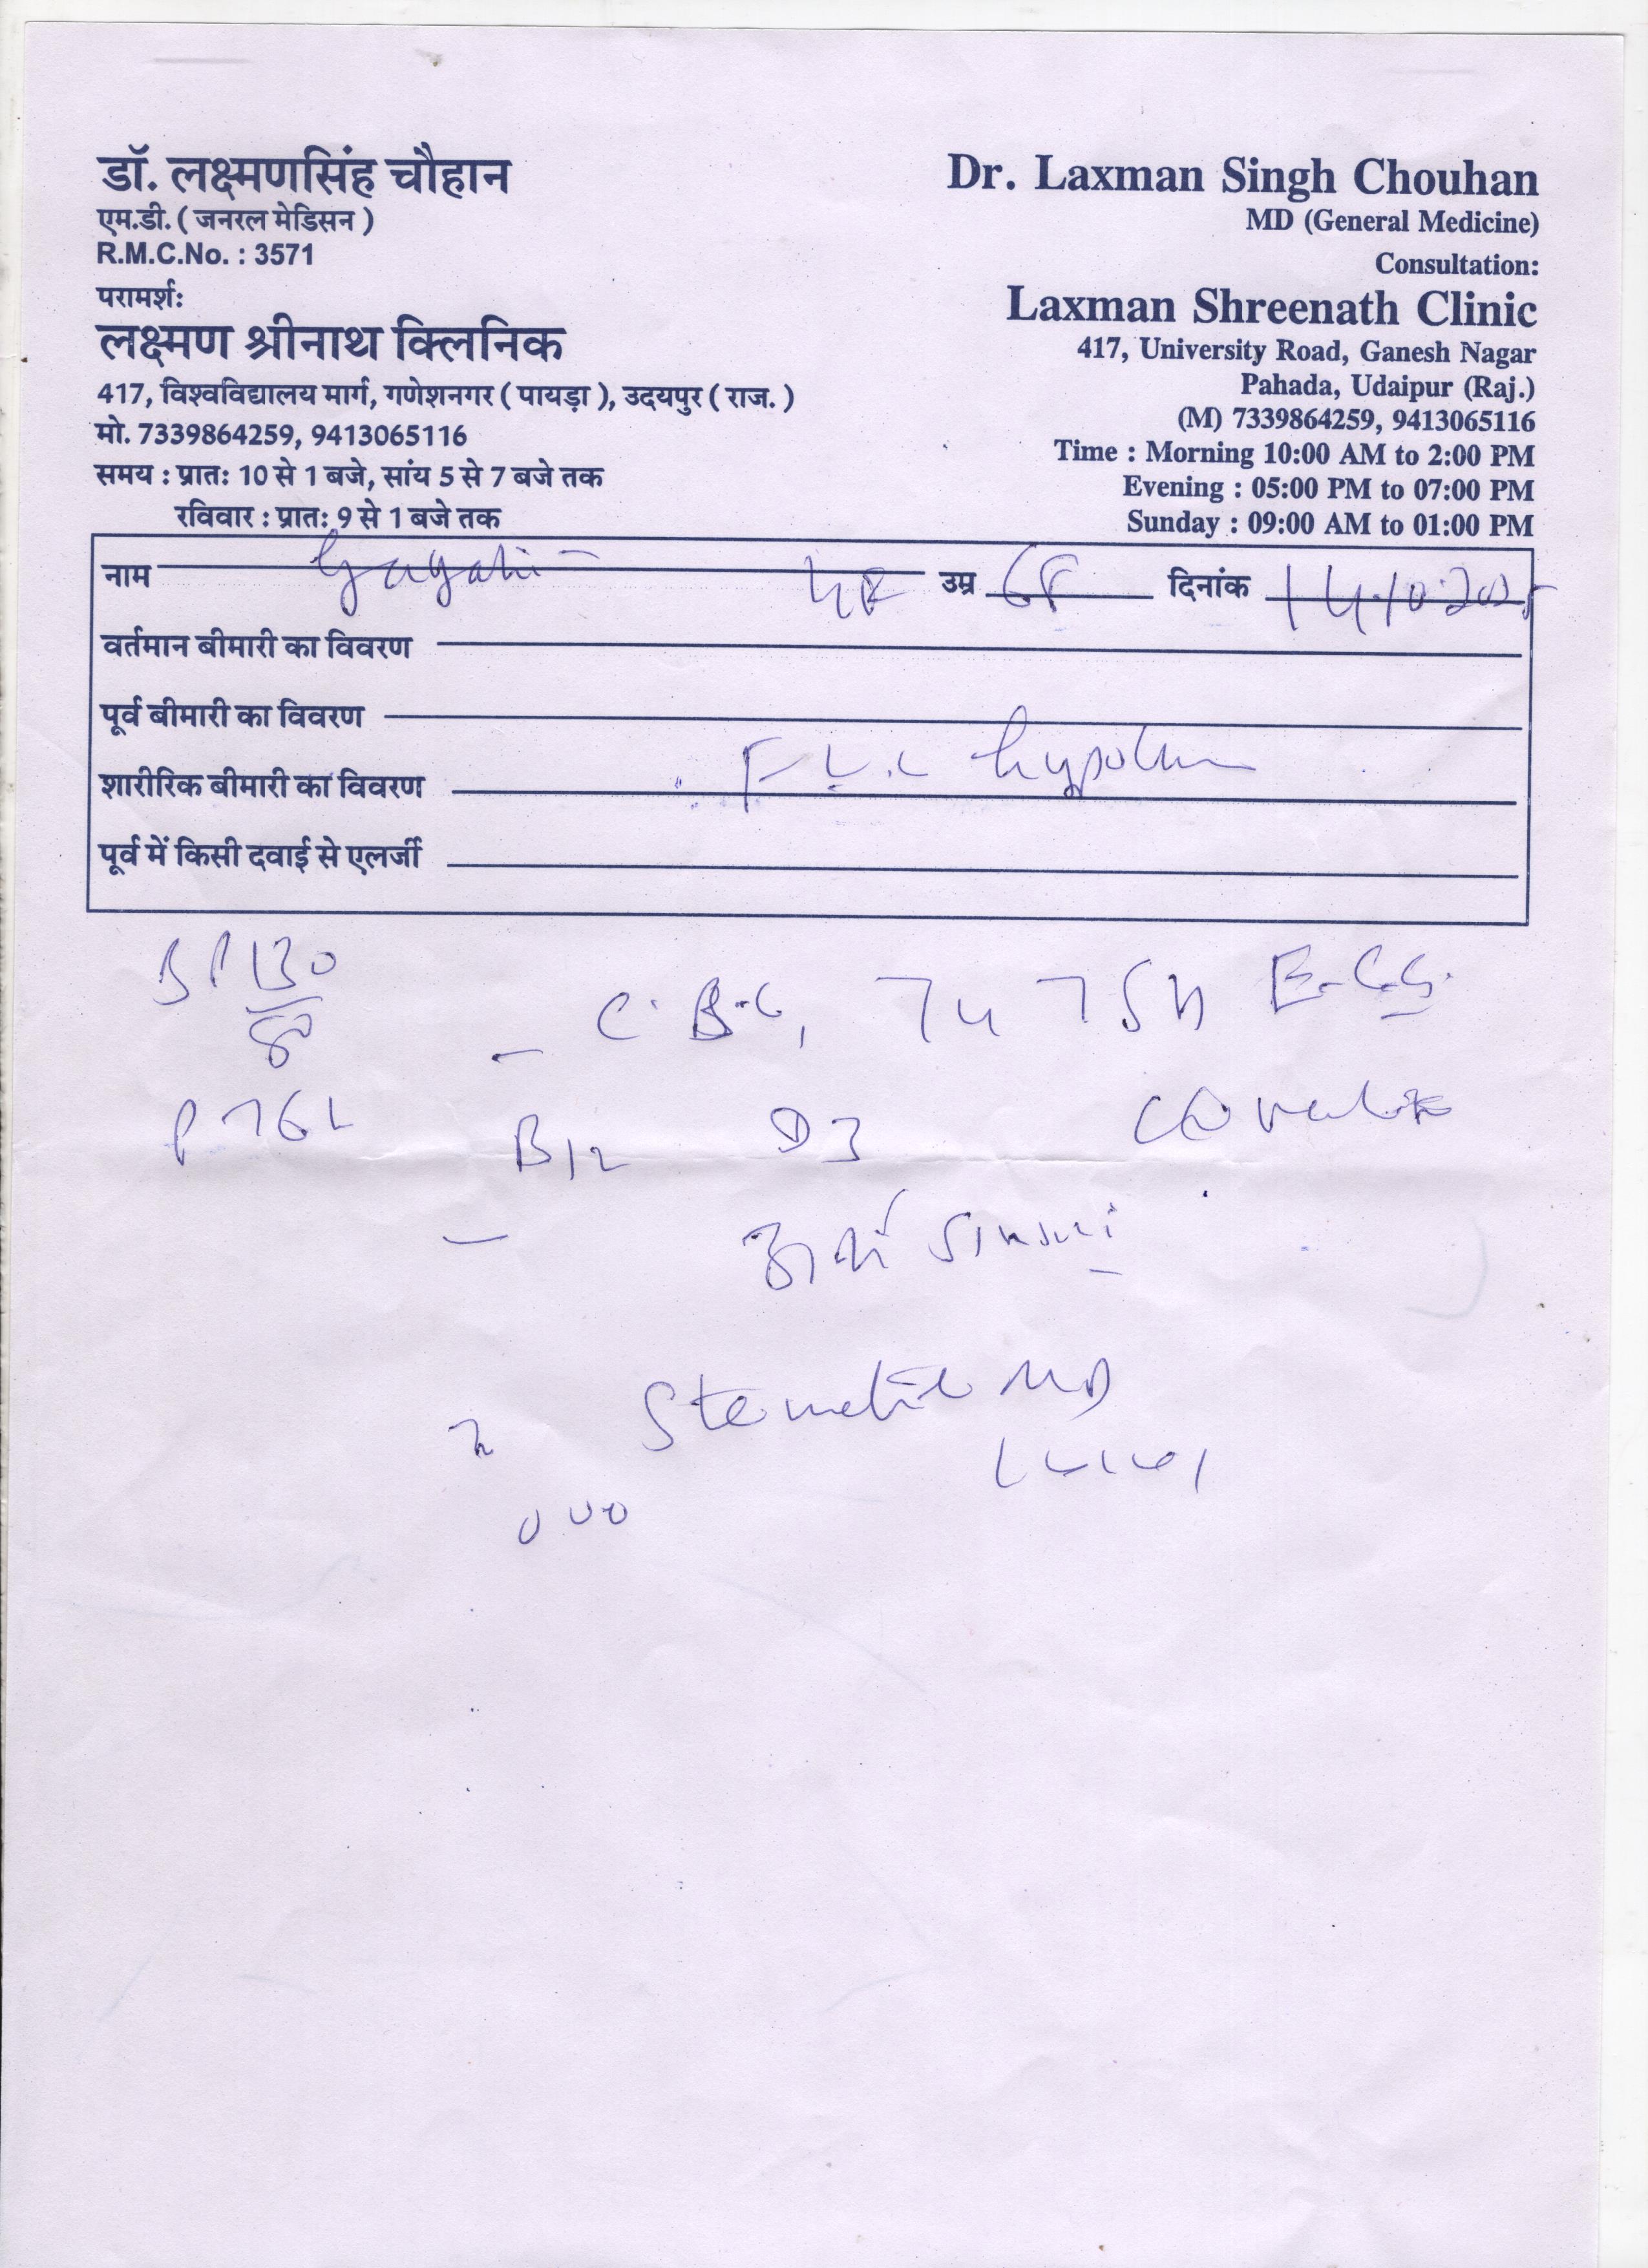 डॉ. लक्ष्मणसिंह चौहान
एम.डी. ( जनरल मेडिसन )
R.M.C.No. : 3571
परामर्श:
लक्ष्मण श्रीनाथ क्लिनिक
417, विश्वविद्यालय मार्ग, गणेशनगर ( पायड़ा ), उदयपुर ( राज. )
मो. 7339864259, 9413065116
समय : प्रातः 10 से 1 बजे, सांय 5 से 7 बजे तक
रविवार : प्रातः 9 से 1 बजे तक
Dr. Laxman Singh Chouhan
MD (General Medicine)
Consultation:
Laxman Shreenath Clinic
417, University Road, Ganesh Nagar
Pahada, Udaipur (Raj.)
(M) 7339864259, 9413065116
Time : Morning 10:00 AM to 2:00 PM
Evening : 05:00 PM to 07:00 PM
Sunday : 09:00 AM to 01:00 PM
नाम उम्र दिनांक 14.10.2025
वर्तमान बीमारी का विवरण
पूर्व बीमारी का विवरण
शारीरिक बीमारी का विवरण
पूर्व में किसी दवाई से एलर्जी
BP 130
80
- C.B.C, TSH E.C.G.
P 76
B12 D3
-
Stemetil MD